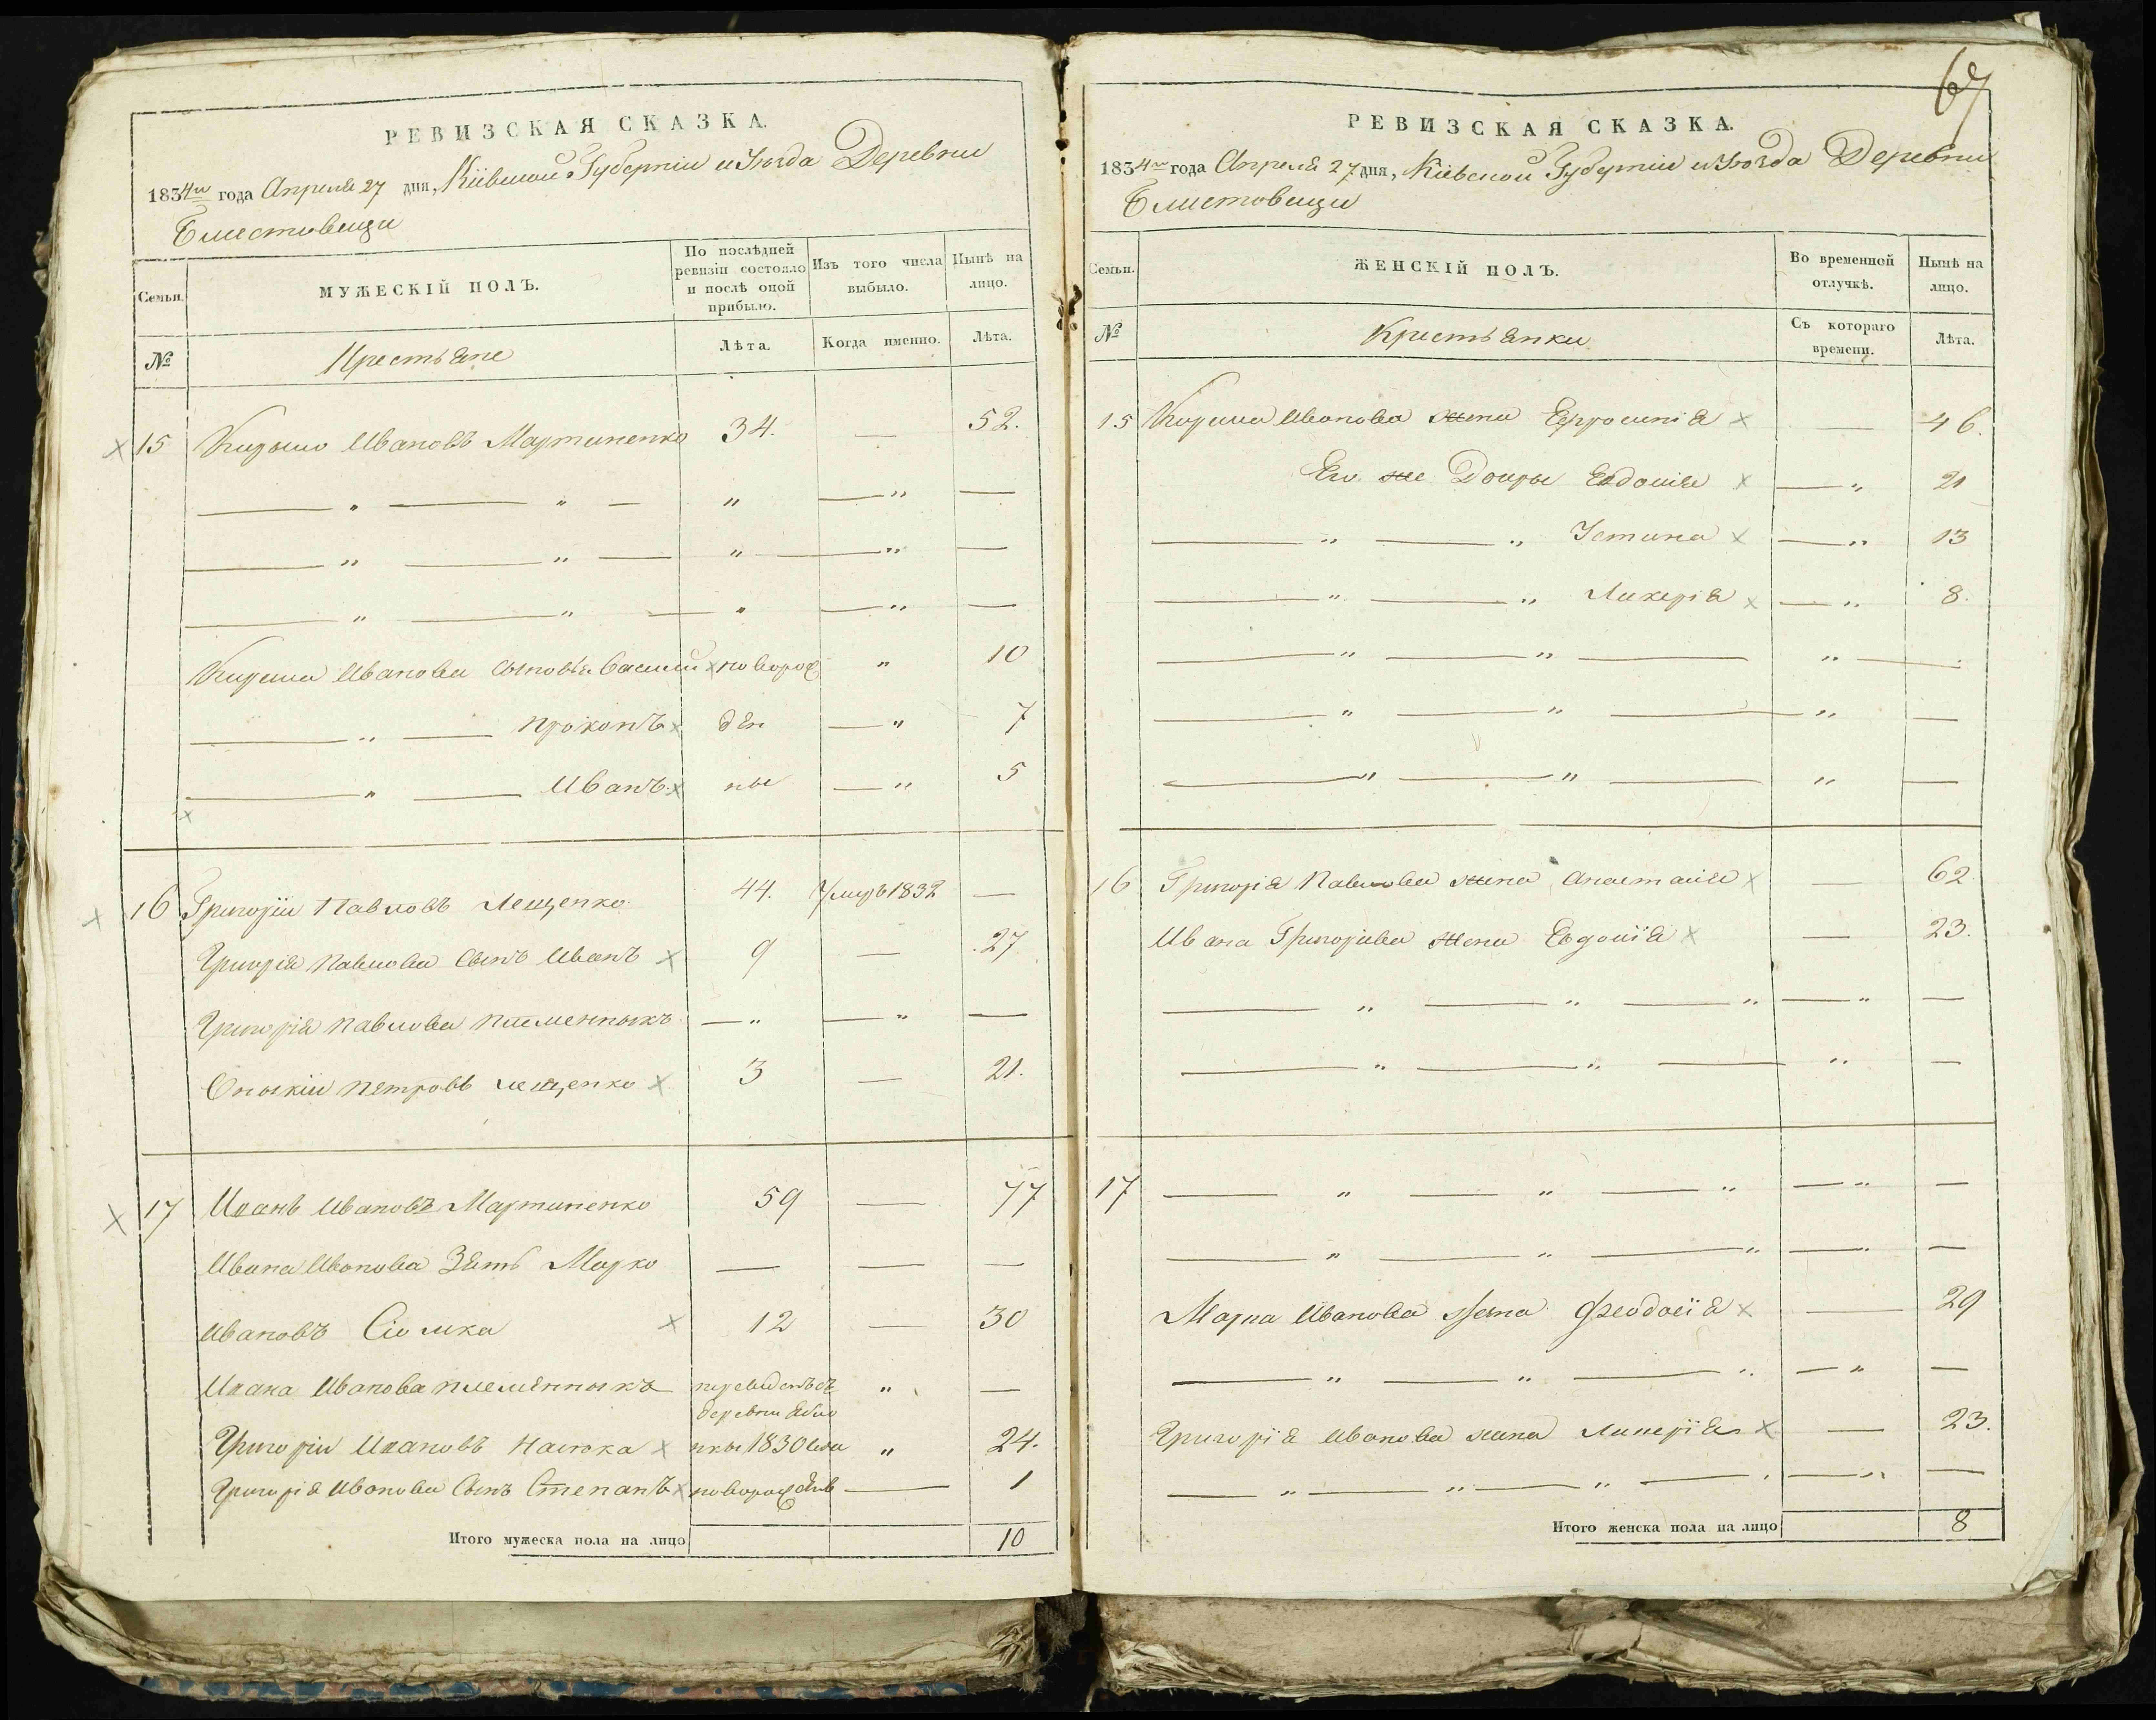 67
РЕВИЗСКАЯ СКАЗКА.
1834го года Апреля 27 дня, Кіевской Губерніи и Уезда Деревни
Блиставици
Семьи.
МУЖЕСКІЙ ПОЛЪ.
По послѣдней ревизіи состояло и послѣ оной прибыло.
Изъ того числа выбыло.
Нынѣ на лицо.
№
Крестьяне
Лѣта.
Когда именно.
Лѣта.
15 Кирыло Ивановъ Мартиненко 34. — 52.
Кирила Иванова сыновья Василий новорож „ 10
Прокопъ ден — „ 7
Иванъ ные — „ 5
16 Григорій Павловъ Лещенко 44. умръ 1832 —
Григорія Павлова сынъ Иванъ 9 — 27
Григорія Павлова племенныкъ — „ — „ —
Оныкій Петровъ Лещенко 3 — 21.
17 Иванъ Ивановъ Мартиненко 59 — 77
Ивана Иванова Зять Марко — — —
Ивановъ Сіомка 12 — 30
Ивана Иванова племянныкъ переведенъ съ „ —
деревни Ябло
Григорій Ивановъ Настюка нки 1830 года „ 24.
Григорія Иванова сынъ Степанъ новорожденъ — 1
Итого мужеска пола на лицо 10
РЕВИЗСКАЯ СКАЗКА.
1834го года Апреля 27 дня, Кіевской Губерніи и Уезда Деревни
Блиставици
Семьи.
ЖЕНСКІЙ ПОЛЪ.
Во временной отлучкѣ.
Нынѣ на лицо.
№
Крестьянки
Съ котораго времени.
Лѣта.
15 Кирила Иванова жена Ефросинія — 46.
Его же Дочры Евдокія — „ 21
— „ — „ Устина — „ 13
— „ — „ Ликерія — „ 8.
16 Григорія Павлова жена Анастасія — 62
Ивана Григорьева жена Евдокія — 23.
17 — „ — „ — „ — „ —
Марка Иванова Жена Феодосія — 29
Григорія Иванова жена Ликерія — 23.
Итого женска пола на лицо 8